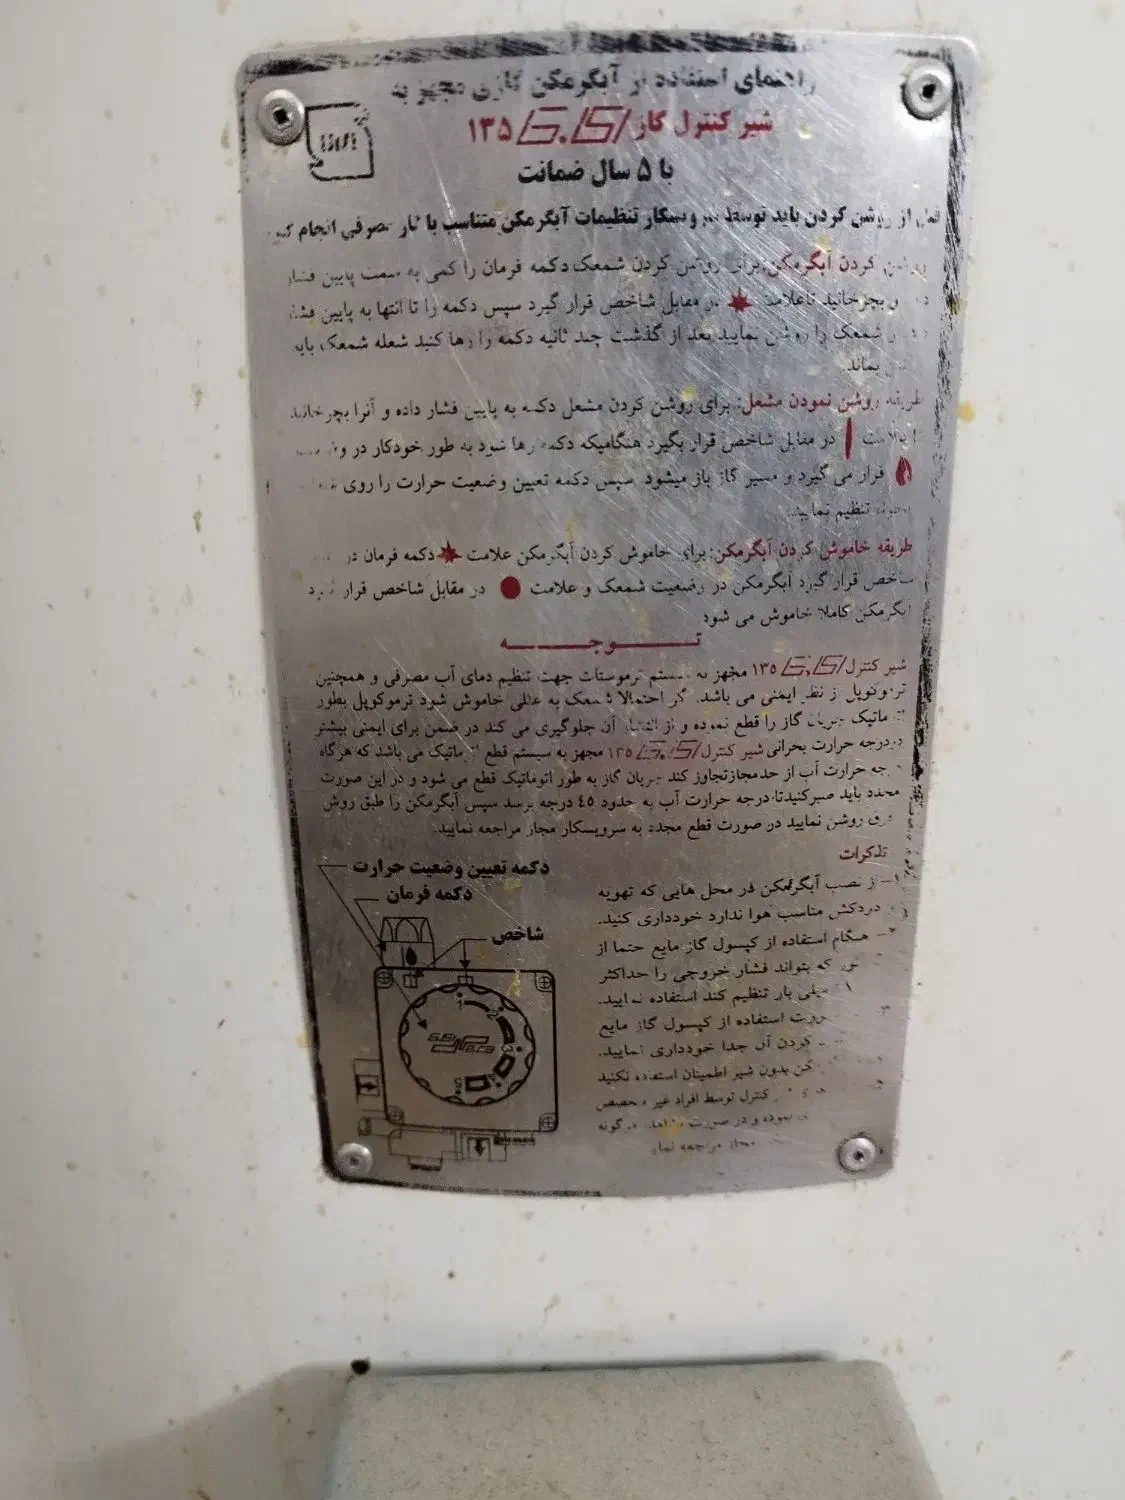 راهنمای استفاده از آبگرمکن گازی مجهز به
شیر کنترل گاز G.S/ ۱۳۵
با ۵ سال ضمانت
از روشن کردن باید توسط سرویسکار تنظیمات آبگرمکن متناسب با گاز مصرفی انجام
کردن آبگرمکن: برای روشن کردن شمعک دکمه فرمان را کمی به سمت پایین فشار
و بچرخانید تا علامت در مقابل شاخص قرار گیرد سپس دکمه را تا انتها به پایین
شمعک را روشن نمایید بعد از گذشت چند ثانیه دکمه را رها کنید شعله شمعک باید
بماند
طریقه روشن نمودن مشعل: برای روشن کردن مشعل دکمه به پایین فشار داده و آنرا بچرخانید
علامت در مقابل شاخص قرار بگیرد هنگامیکه دکمه رها شود به طور خودکار در
قرار می گیرد و مسیر گاز باز میشود سپس دکمه تعیین وضعیت حرارت را روی
تنظیم نمایید.
طریقه خاموش کردن آبگرمکن: برای خاموش کردن آبگرمکن علامت دکمه فرمان در
شاخص قرار گیرد آبگرمکن در وضعیت شمعک و علامت در مقابل شاخص قرار گیرد
آبگرمکن کاملا خاموش می شود
توجه
شیر کنترل G.S/ ۱۳۵ مجهز به سیستم ترموستات جهت تنظیم دمای آب مصرفی و همچنین
ترموکوپل از نظر ایمنی می باشد. گر احتمالا شمعک به عللی خاموش شود ترموکوپل بطور
اتوماتیک جریان گاز را قطع نموده و از انتشار آن جلوگیری می کند در ضمن برای ایمنی بیشتر
درجه حرارت بحرانی شیر کنترل G.S/ ۱۳۵ مجهز به سیستم قطع اتوماتیک می باشد که هرگاه
درجه حرارت آب از حد مجاز تجاوز کند جریان گاز به طور اتوماتیک قطع می شود و در این صورت
مجدد باید صبر کنید تا درجه حرارت آب به حدود ٤٥ درجه برسد سپس آبگرمکن را طبق روش
فوق روشن نمایید در صورت قطع مجدد به سرویسکار مجاز مراجعه نمایید.
دکمه تعیین وضعیت حرارت
دکمه فرمان
شاخص
تذکرات
۱- از نصب آبگرمکن در محل هایی که تهویه
دودکش مناسب هوا ندارد خودداری کنید.
۲- هنگام استفاده از کپسول گاز مایع حتما از
که بتواند فشار خروجی را حداکثر
میلی بار تنظیم کند استفاده نمایید.
استفاده از کپسول گاز مایع
کردن آن جدا خودداری نمایید.
بدون شیر اطمینان استفاده نکنید
کنترل توسط افراد غیر متخصص
نموده و در صورت هرگونه
مجاز مراجعه